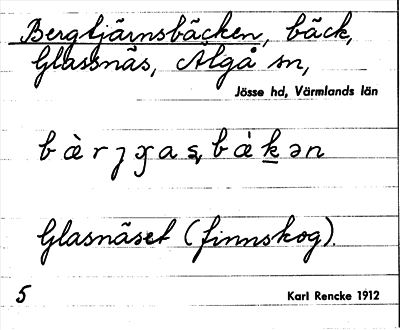 Bergtjärnsbäcken, bäck,
Glassnäs, Älgå sn,
Jösse hd, Värmlands län
Glasnäset (finnskog).
5
Karl Rencke 1912